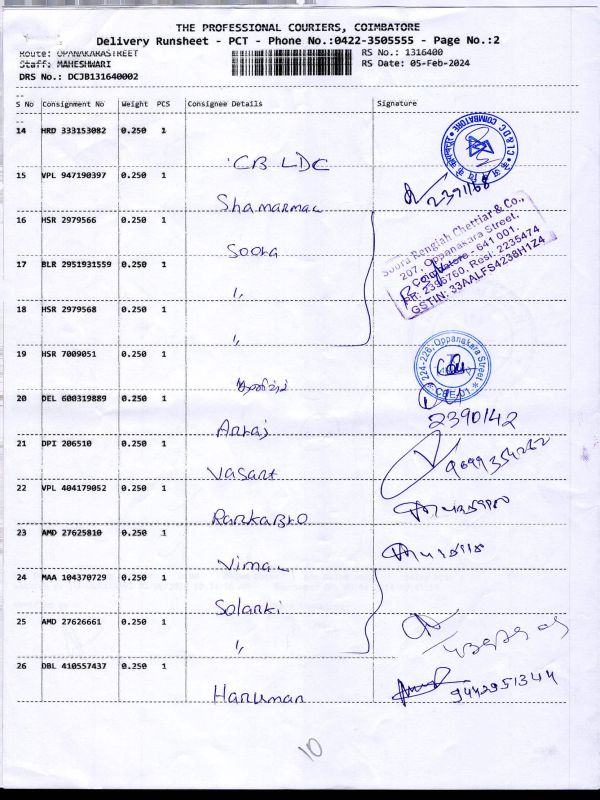 THE PROFESSIONAL COURIERS, COIMBATORE
Delivery Runsheet - PCT - Phone No.:0422-3505555 - Page No.:2
Route: OPANAKARASTREET
RS No.: 1316400
Staff: MAHESHWARI
RS Date: 05-Feb-2024
DRS No.: DCJB131640002
S No Consignment No Weight PCS Consignee Details Signature
14 HRD 333153082 0.250 1
CB LDC
15 VPL 947190397 0.250 1
2391168
Shamarmal
16 HSR 2979566 0.250 1
Soora
Soora Rengiah Chettiar & Co.,
207, Oppanakara Street,
Coimbatore - 641 001.
Ph: 2396760, Resi: 2235474
GSTIN: 33AALFS4238H1Z4
17 BLR 2951931559 0.250 1
"
18 HSR 2979568 0.250 1
"
19 HSR 7009051 0.250 1
224-226, Oppanakara Street
CBE-01
20 DEL 600319889 0.250 1
2390142
Anraj
21 DPI 206510 0.250 1
Vasant
22 VPL 404179052 0.250 1
RankaBro
23 AMD 27625810 0.250 1
Vimal
24 MAA 104370729 0.250 1
Solanki
25 AMD 27626661 0.250 1
"
26 DBL 410557437 0.250 1
9442951344
Hanuman
10